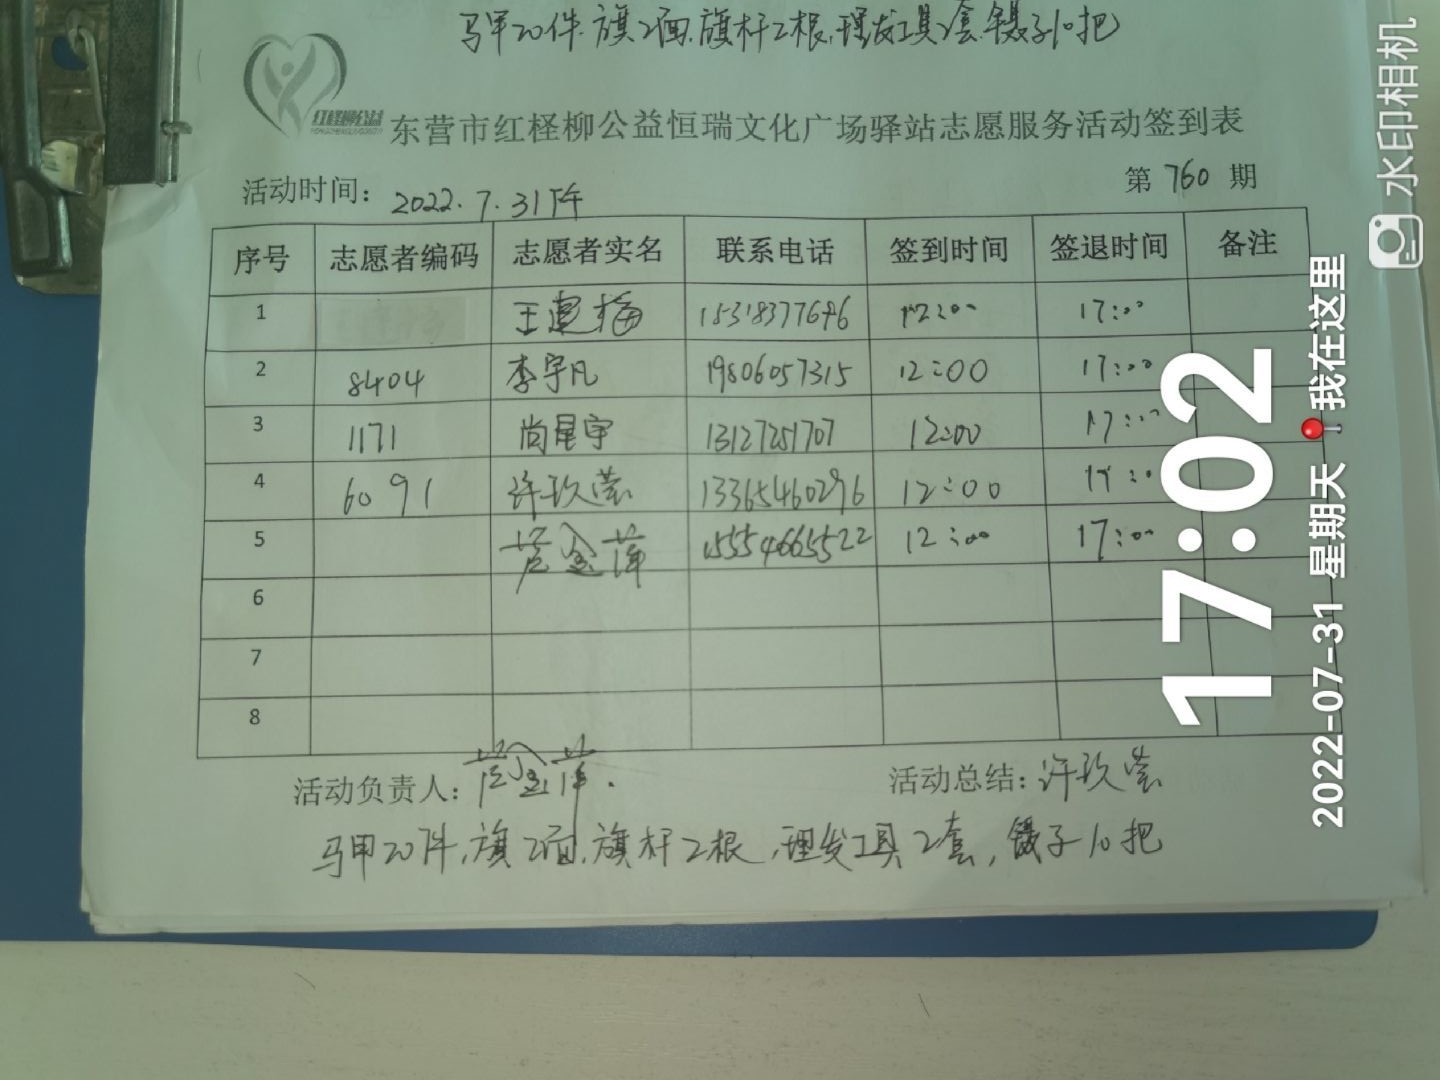 马甲20件.旗2面.旗杆2根,理发工具2套.镊子10把
红柽柳公益
东营市红柽柳公益恒瑞文化广场驿站志愿服务活动签到表
活动时间: 2022.7.31下午 第 760 期
序号 志愿者编码 志愿者实名 联系电话 签到时间 签退时间 备注
1 王建梅 15318377696 12:00 17:00
2 8404 李宇凡 19806057315 12:00 17:00
3 1171 尚星宇 13127251707 12:00 17:00
4 6091 许玖莹 13365460296 12:00 17:00
5 15554665522 12:00 17:00
6
7
8
活动负责人: 活动总结: 许玖莹
马甲20件,旗2面,旗杆2根,理发工具2套,镊子10把
17:02
2022-07-31 星期天 我在这里
水印相机